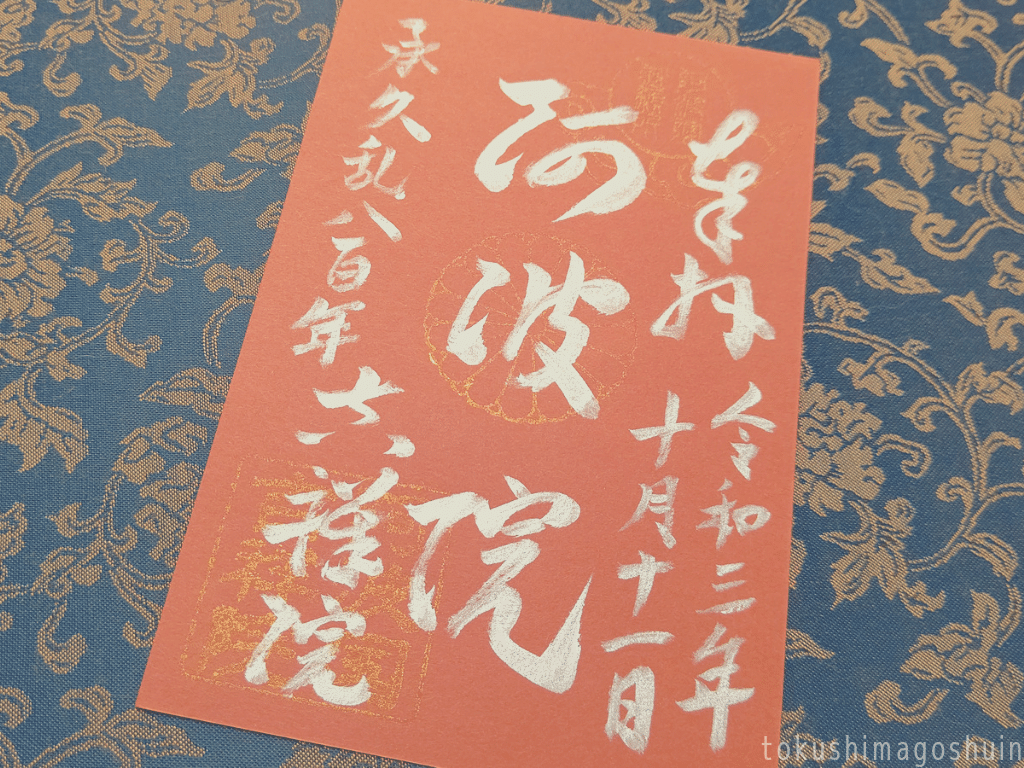 奉拝
令和三年
十月十一日
阿波院
承久乱八百年
六祥院
tokushimagoshuin